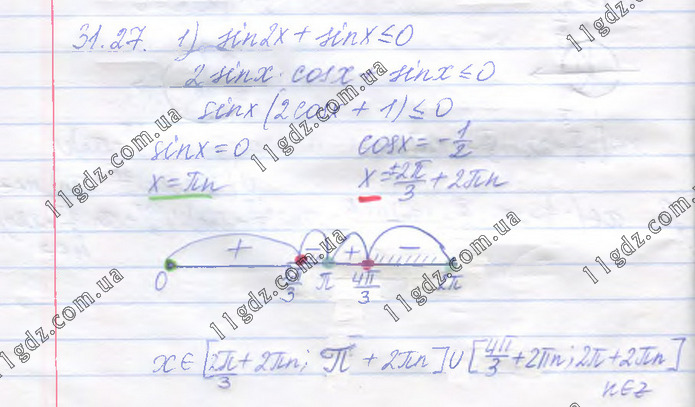 31.27. 1) sin2x + sinx ≤ 0
2 sinx · cosx + sinx ≤ 0
sinx (2cosx + 1) ≤ 0
sinx = 0 cosx = -1/2
x = πn x = ±2π/3 + 2πn
+ - + -
0 2π/3 π 4π/3 2π
x ∈ [2π/3 + 2πn; π + 2πn] ∪ [4π/3 + 2πn; 2π + 2πn]
n∈z
11gdz.com.ua
11gdz.com.ua
11gdz.com.ua
11gdz.com.ua
11gdz.com.ua
11gdz.com.ua
11gdz.com.ua